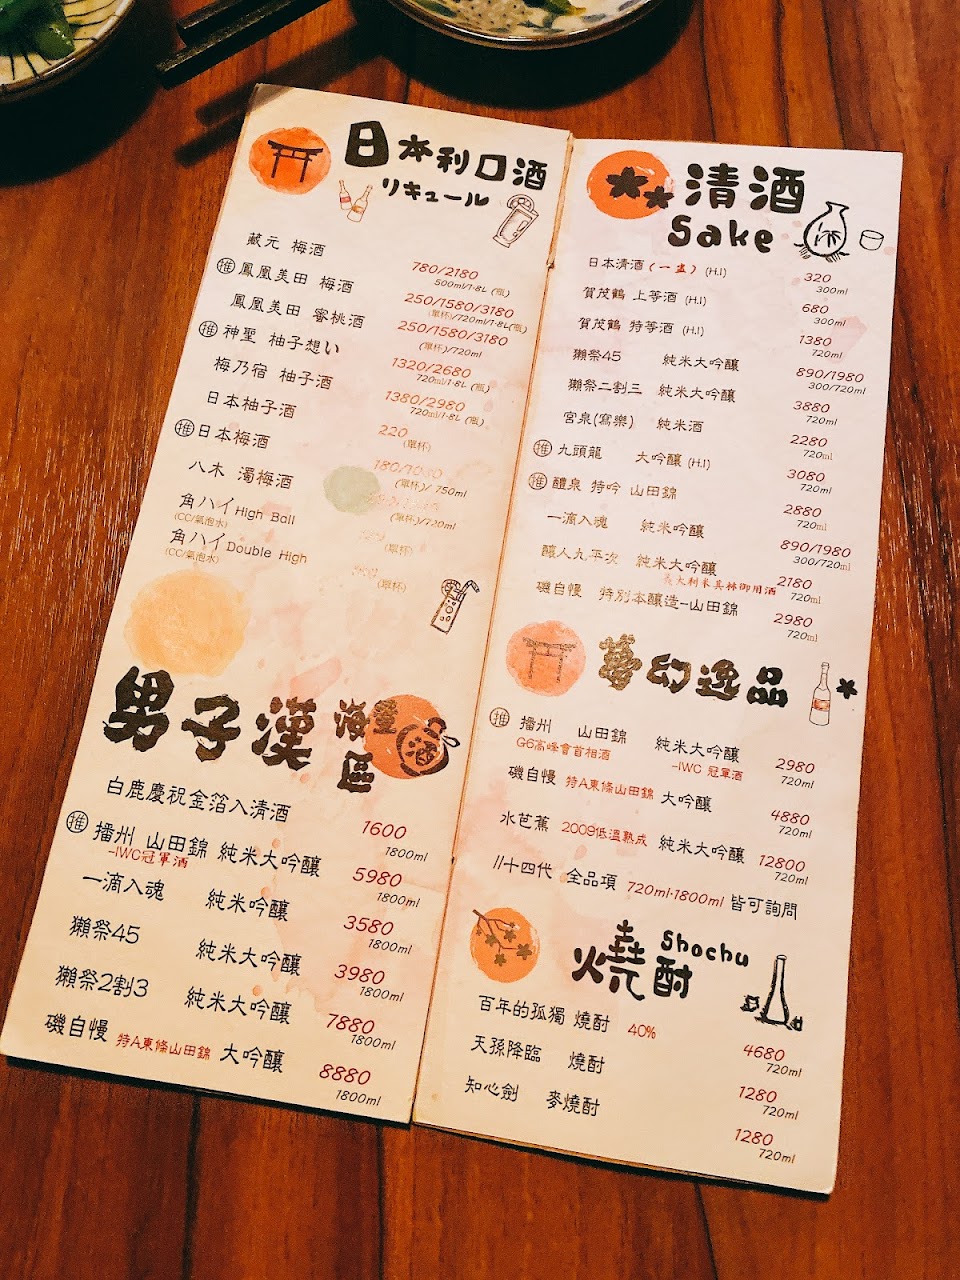 日本利口酒
リキュール
蔵元 梅酒 780/2180
500ml/1.8L (瓶)
推 鳳凰美田 梅酒 250/1580/3180
(單杯)/720ml/1.8L(瓶)
鳳凰美田 蜜桃酒 250/1580/3180
(單杯)/720ml
推 神聖 柚子想い 1320/2680
720ml/1.8L (瓶)
梅乃宿 柚子酒 1380/2980
720ml/1.8L (瓶)
日本柚子酒 220
(單杯)
推 日本梅酒 180/1080
(單杯)/ 750ml
八木 濁梅酒
(單杯)/720ml
角ハイ High Ball
(CC/氣泡水) (單杯)
角ハイ Double High
(CC/氣泡水) (單杯)
男子漢 海量區
酒
白鹿慶祝金箔入清酒 1600
1800ml
推 播州 山田錦 純米大吟釀 5980
-IWC冠軍酒 1800ml
一滴入魂 純米吟釀 3580
1800ml
獺祭45 純米大吟釀 3980
1800ml
獺祭2割3 純米大吟釀 7880
1800ml
磯自慢 特A東條山田錦 大吟釀 8880
1800ml
清酒
Sake
日本清酒(一盅) (H.I) 320
300ml
賀茂鶴 上等酒 (H.I) 680
300ml
賀茂鶴 特等酒 (H.I) 1380
720ml
獺祭45 純米大吟釀 890/1980
300/720ml
獺祭二割三 純米大吟釀 3880
720ml
宮泉(寫樂) 純米酒 2280
720ml
推 九頭龍 大吟釀 (H.I) 3080
720ml
推 醴泉 特吟 山田錦 2880
720ml
一滴入魂 純米吟釀 890/1980
300/720ml
釀人九平次 純米大吟釀 2180
義大利米其林御用酒 720ml
磯自慢 特別本釀造-山田錦 2980
720ml
夢幻逸品
推 播州 山田錦 純米大吟釀 2980
G6高峰會首相酒 -IWC 冠軍酒 720ml
磯自慢 特A東條山田錦 大吟釀 4880
720ml
水芭蕉 2009低溫熟成 純米大吟釀 12800
720ml
//十四代 全品項 720ml.1800ml 皆可詢問
燒酎
Shochu
百年的孤獨 燒酎 40% 4680
720ml
天孫降臨 燒酎 1280
720ml
知心劍 麥燒酎 1280
720ml